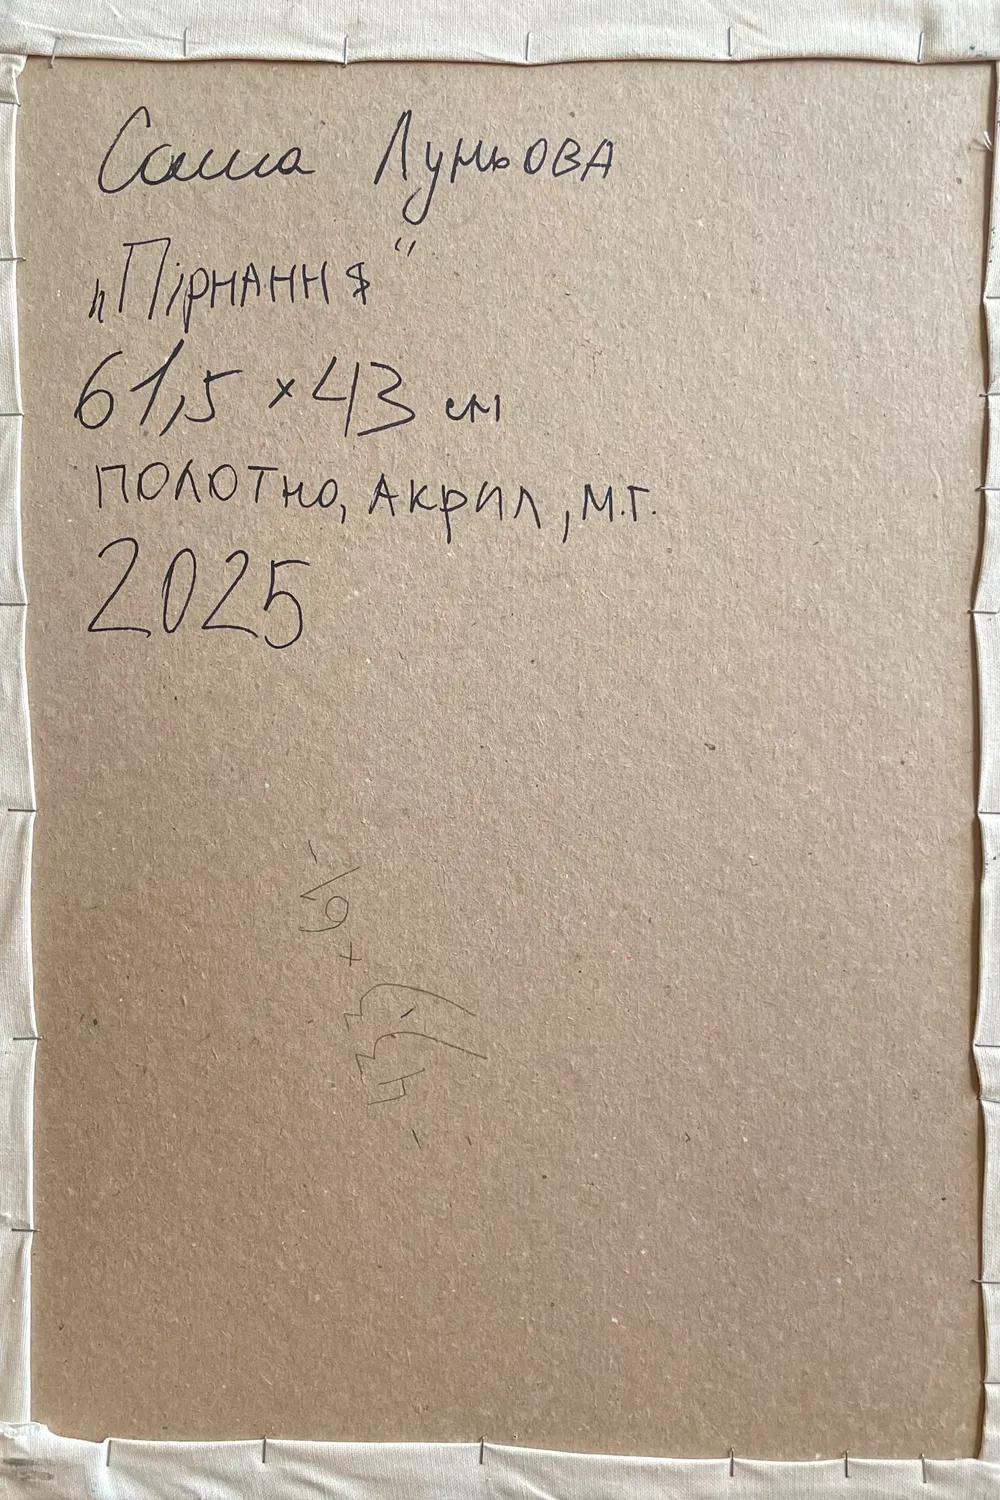 Саша Луньова
„Пірнання"
61,5 × 43 см
полотно, акрил, м.г.
2025